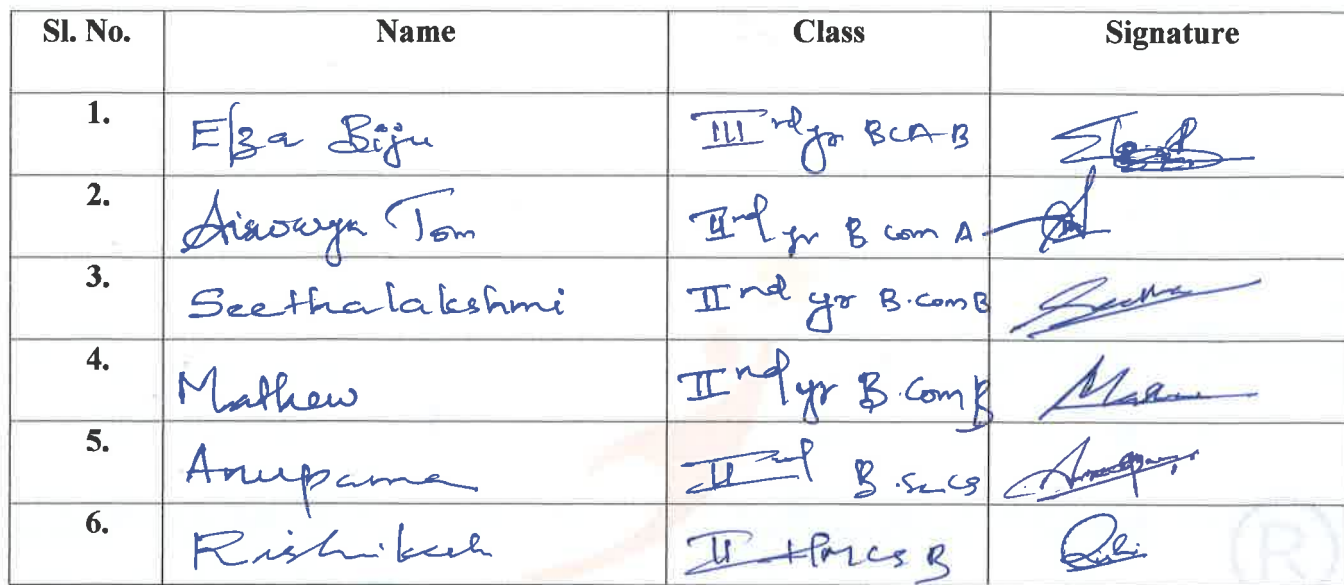 Sl. No. Name Class Signature
1. Elza Biju III rd yr BCA-B
2. Aiswarya Tom II nd yr B com A
3. Seethalakshmi II nd yr B.com B Seetha
4. Mathew II nd yr B.Com B
5. Anupama II nd B.Sc CS
6. Rishikesh II B
R